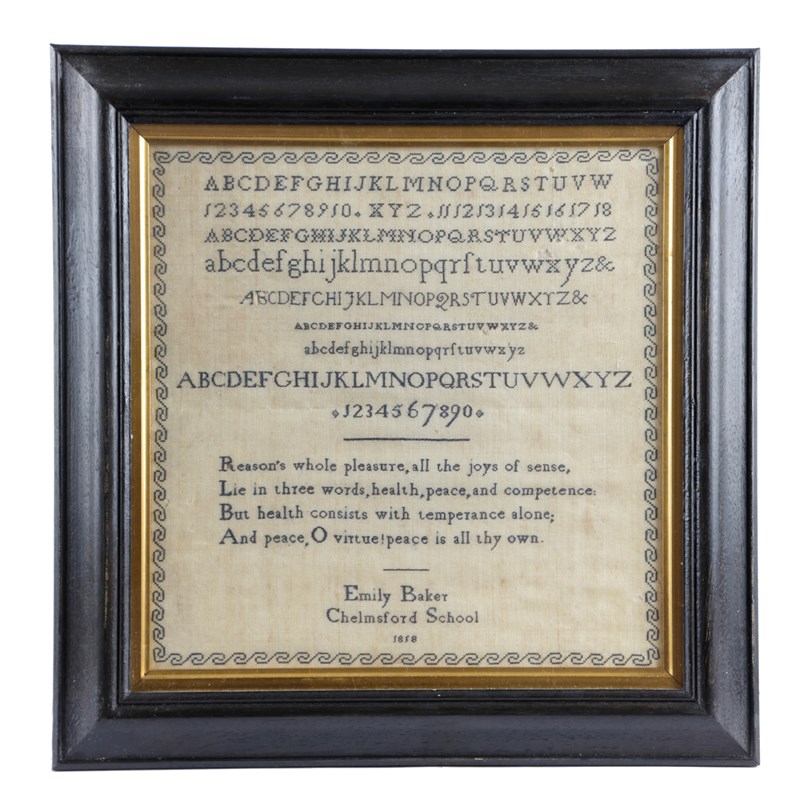 ABCDEFGHIJKLMNOPQRSTUVW
12345678910. XYZ .1112131415161718
ABCDEFGHIJKLMNOPQRSTUVWXYZ
abcdefghijklmnopqrſtuvwxyz&
ABCDEFGHIJKLMNOPQRSTUVWXYZ&
ABCDEFGHIJKLMNOPQRSTUVWXYZ&
abcdefghijklmnopqrſtuvwxyz
ABCDEFGHIJKLMNOPQRSTUVWXYZ
1234567890
Reason's whole pleasure, all the joys of sense,
Lie in three words, health, peace, and competence:
But health consists with temperance alone;
And peace, O virtue! peace is all thy own.
Emily Baker
Chelmsford School
1858